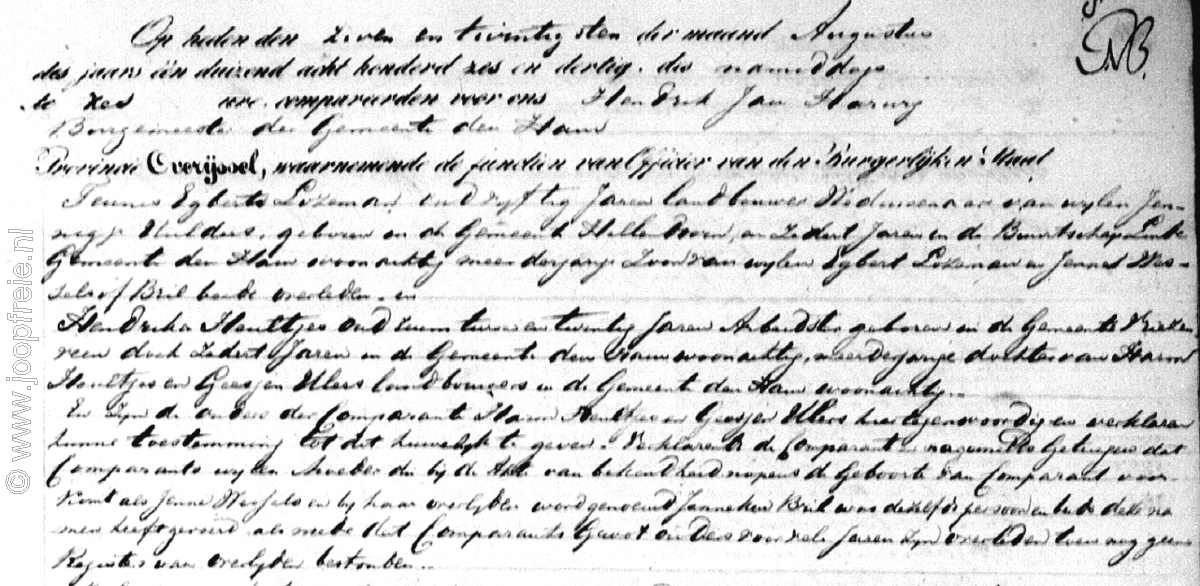 Op heden den zeven en twintigsten der maand Augustus
des jaars één duizend acht honderd zes en dertig, des namiddags
te zes ure, compareerden voor ons Hendrik Jan
Burgemeester der Gemeente den Ham
Provincie Overijssel, waarnemende de functien van Officier van den Burgerlijken Staat
Teunis Egberts Lozeman oud vyftig Jaren landbouwer Weduwenaar van wylen Jen-
negje Mulders, geboren in de Gemeente Hellendoorn, en zedert Jaren in de Buurtschap Linde
Gemeente den Ham woonachtig meerderjarige Zoon van wylen Egbert Lozeman en Jennes Wes-
sels of Bril beide overleden, en
Hendrika Heultjes oud ruim twee en twintig Jaren Arbeidster geboren in de Gemeente Vriezen
veen doch zedert Jaren in de Gemeente den Ham woonachtig, meerderjarige dochter van Harm
Heultjes en Geesjen Ulers landbouwers in de Gemeente den Ham woonachtig.
En zyn de ouders der Comparant Harm Heultjes en Geesjen Ulers hier tegenwoordig en verklaren
hunne toestemming tot dit huwelyk te geven. Verklarende de Comparant en nagemelde Getuigen dat
Comparants wylen Moeder die bij de Akte van bekendheid nopens de Geboorte van Comparant voor-
komt als Jenne Wessels en by haar overlyden word genoemd Janneken Bril was dezelfde persoon en beide deze na
men heeft gevoerd als mede dat Comparants Groot ouders voor vele Jaren zyn overleden toen nog geene
Registers van overlyden bestonden.
© www.joopfreie.nl